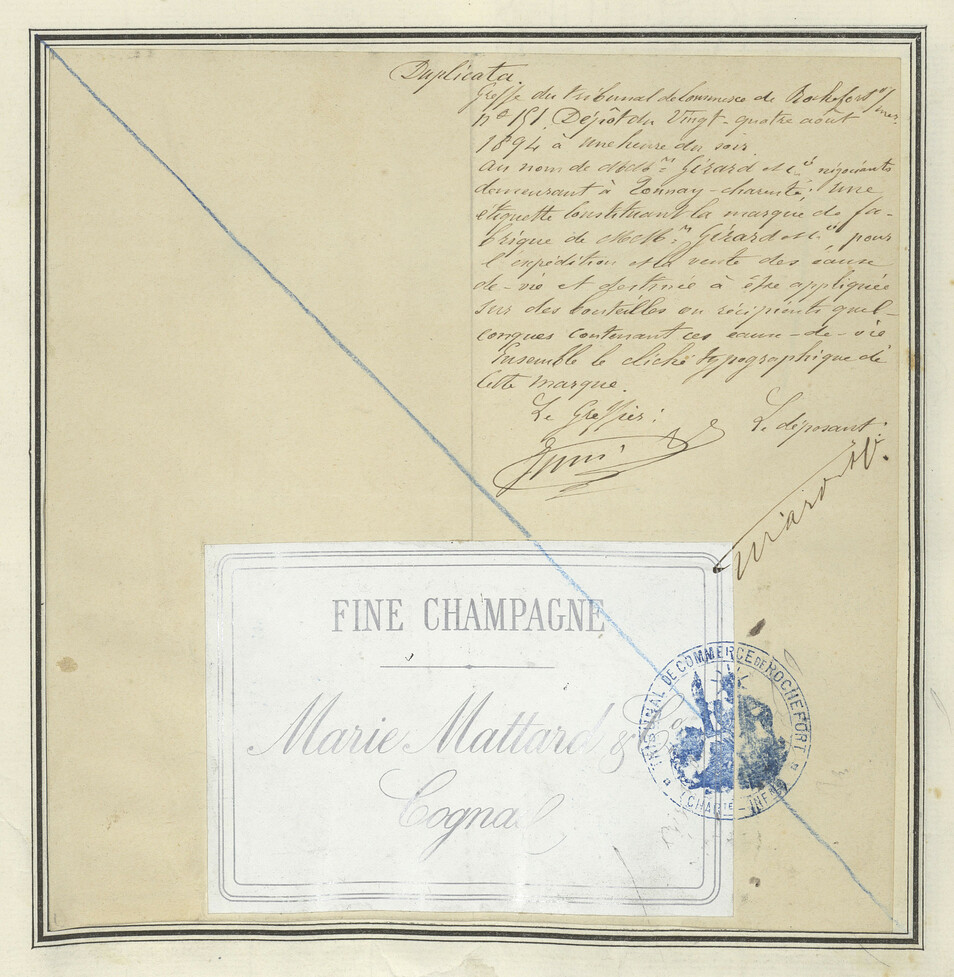 Duplicata.
Greffe du tribunal de Commerce de Rochefort s/mer.
nº 151. Dépôt du Vingt-quatre août
1894 à une heure du soir
au nom de MM.rs Gérard et Cie négociants
demeurant à Tonnay-charente; une
étiquette constituant la marque de fa-
brique de MM.rs Gérard et Cie, pour
l'expédition et la vente des eaux
de-vie et destinée à être appliquée
sur des bouteilles ou récipients quel-
conques contenant ces eaux-de-vie
Ensemble le cliché typographique de
cette marque.
Le Greffier:
Le déposant:
FINE CHAMPAGNE
Marie Mattard & Co
Cognac
TRIBUNAL DE COMMERCE DE ROCHEFORT
(CHARTE-INFRE)